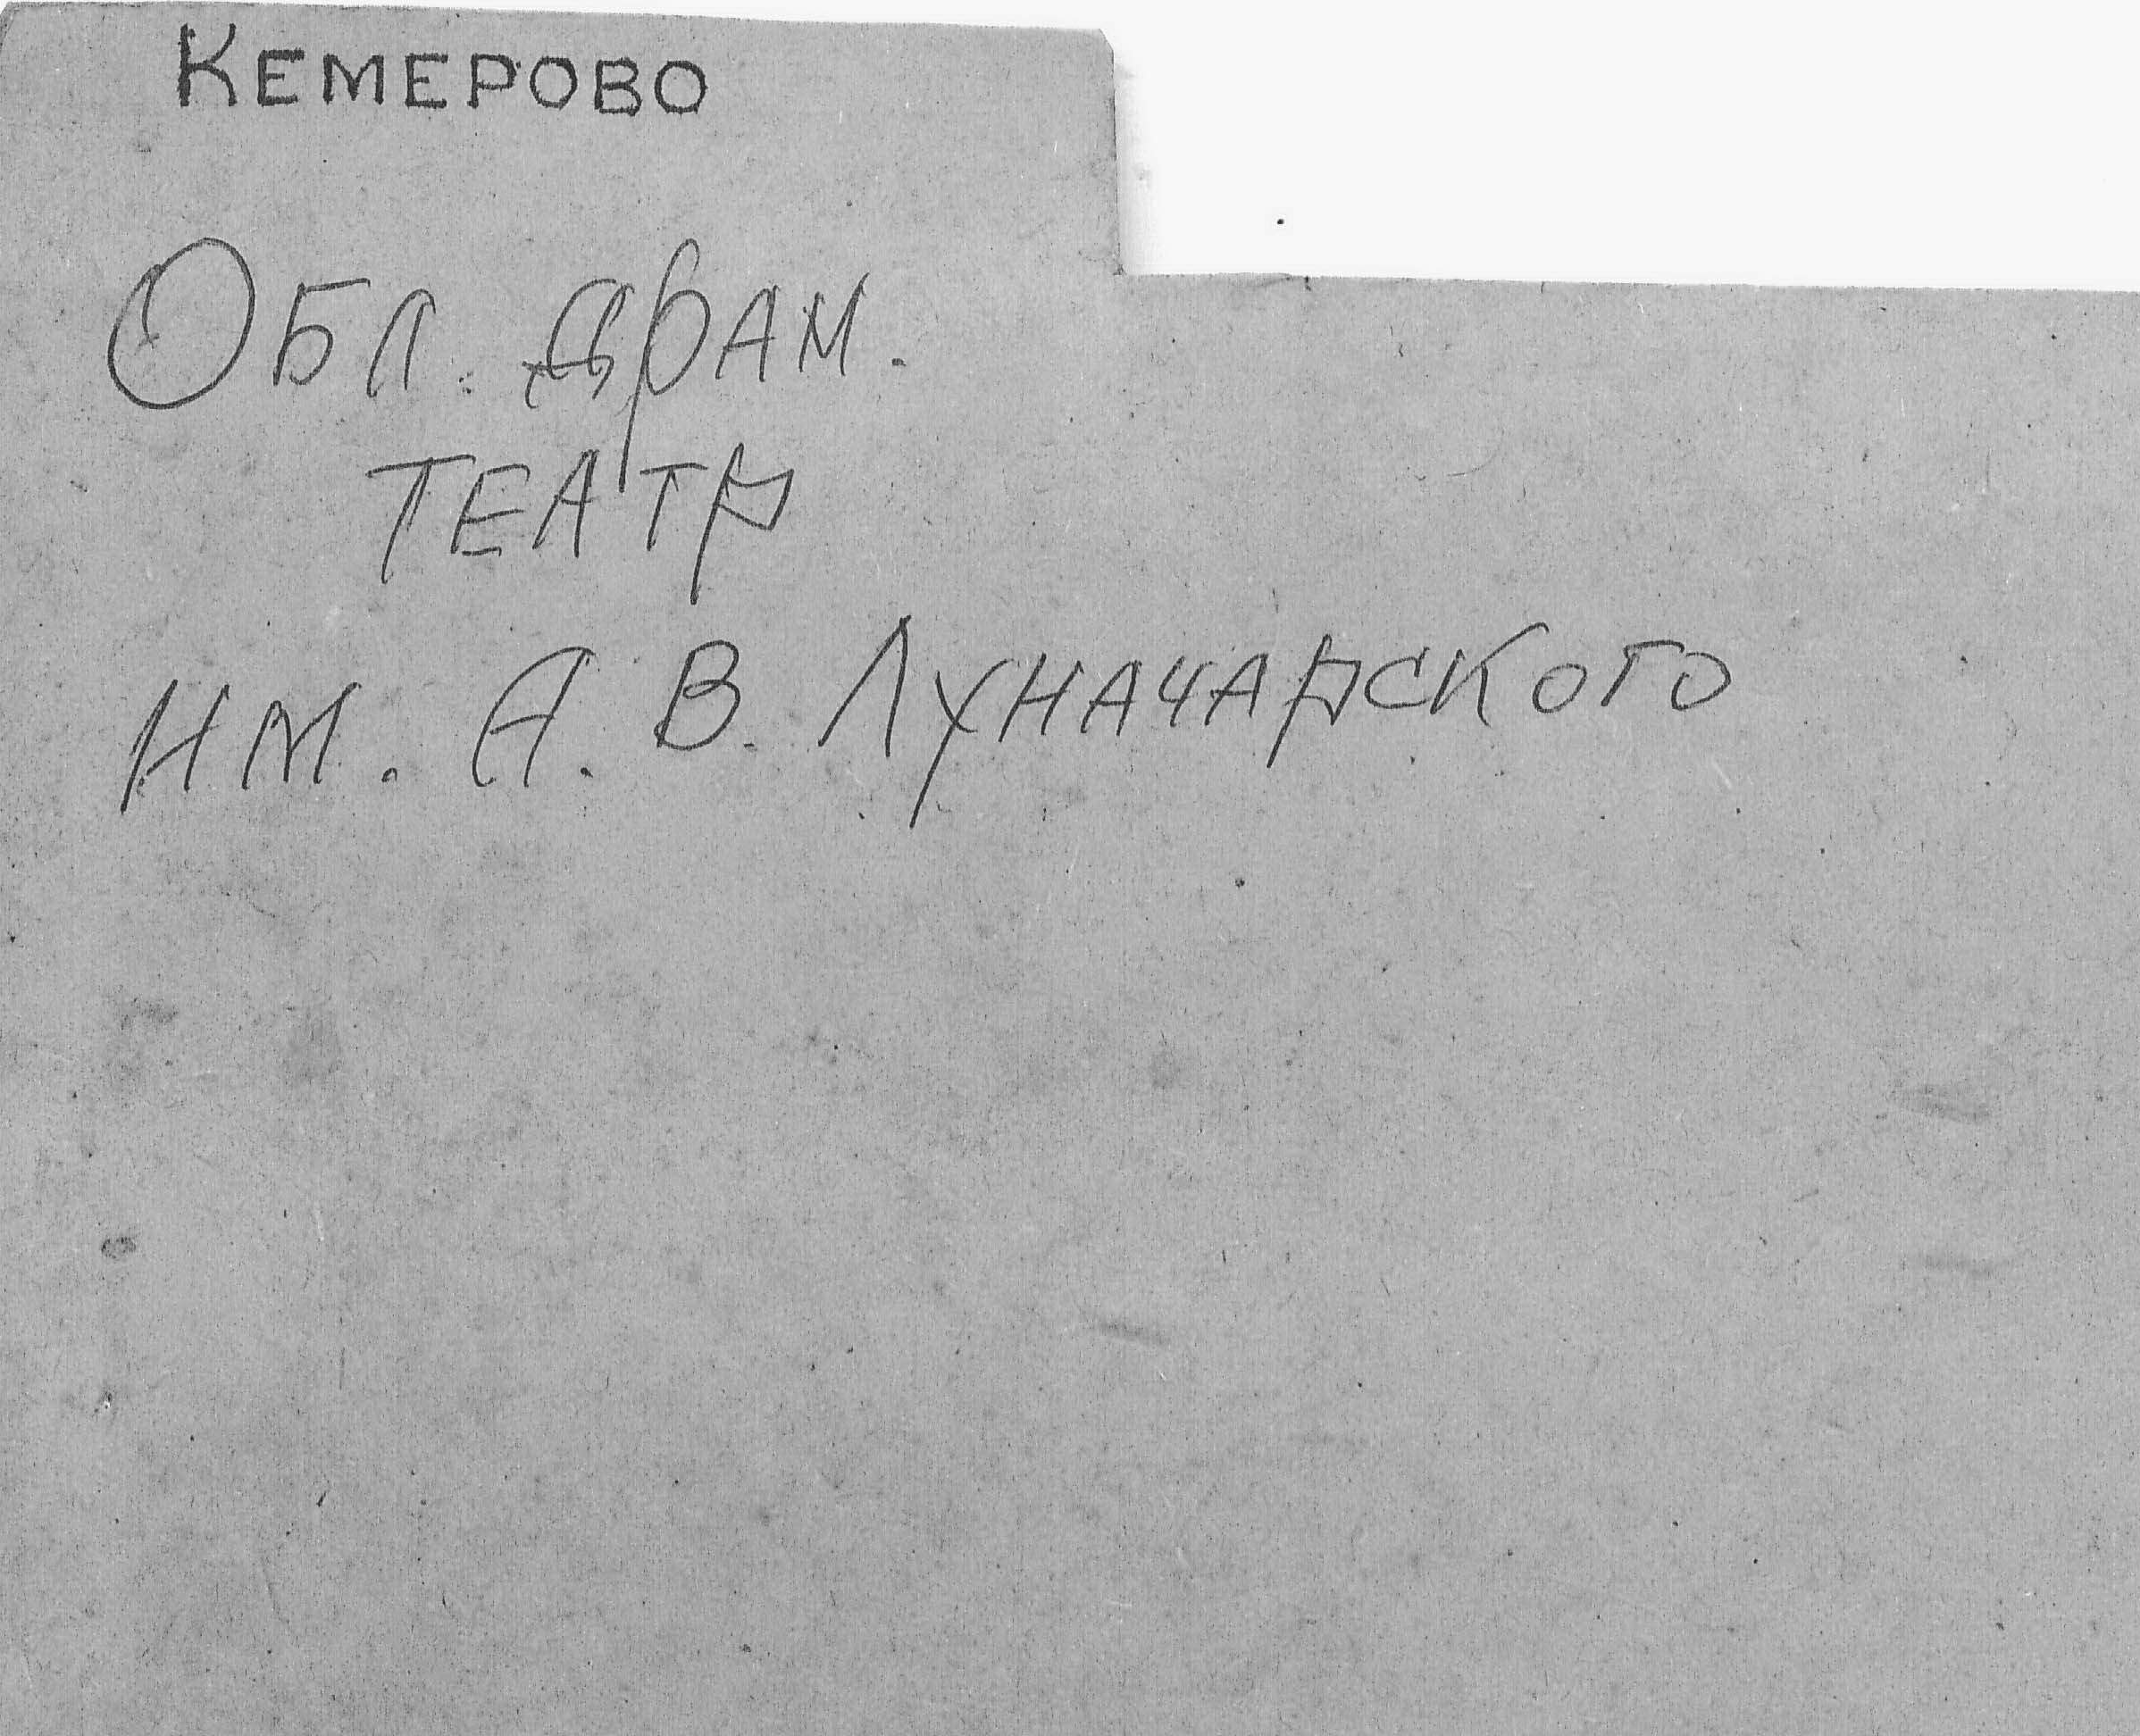 КЕМЕРОВО
ОБЛ. ДРАМ.
ТЕАТР
ИМ. А. В. ЛУНАЧАРСКОГО